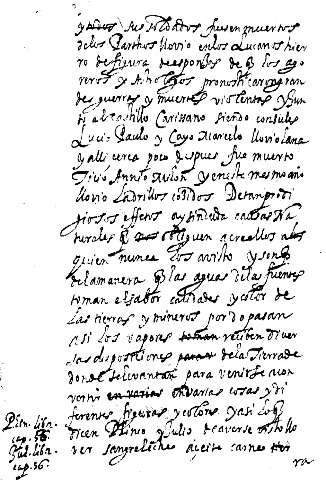 y todos sus soldados fuesen muertos
de los Parthos llovio en los Lucanos hier
ro de figura de esponjas de q̃ los ago
reros y Astrologos pronosticaron gran
des guerras y muertes violentas y Jun
to al castillo Carisano siendo consules
Lucio Paulo y Cayo Marcelo llovio lana
y alli cerca poco despues fue muerto
Tito Annio Milon y en este mesmo año
llovio Ladrillos cozidos De tan prodi
giosos effetos ay sin duda causas Na
turales q̃ obliguen a creellos a
quien nunca los a visto y son q̃
de la manera q̃ las aguas de las fuentes
toman el sabor calidades y color de
las tierras y mineros por do pasan
asi los vapores toman reciben diver
sas disposiciones de la tierra de
donde se levantan para venirse a con
vertir en varias en varias cosas y di
ferentes figuras y colores y asi lo q̃
dicen Plinio y Julio de averse visto llo
ver sangre leche azeite carne
ra
Plin. lib. 2.
cap. 56.
Jul. lib.
cap. 56.